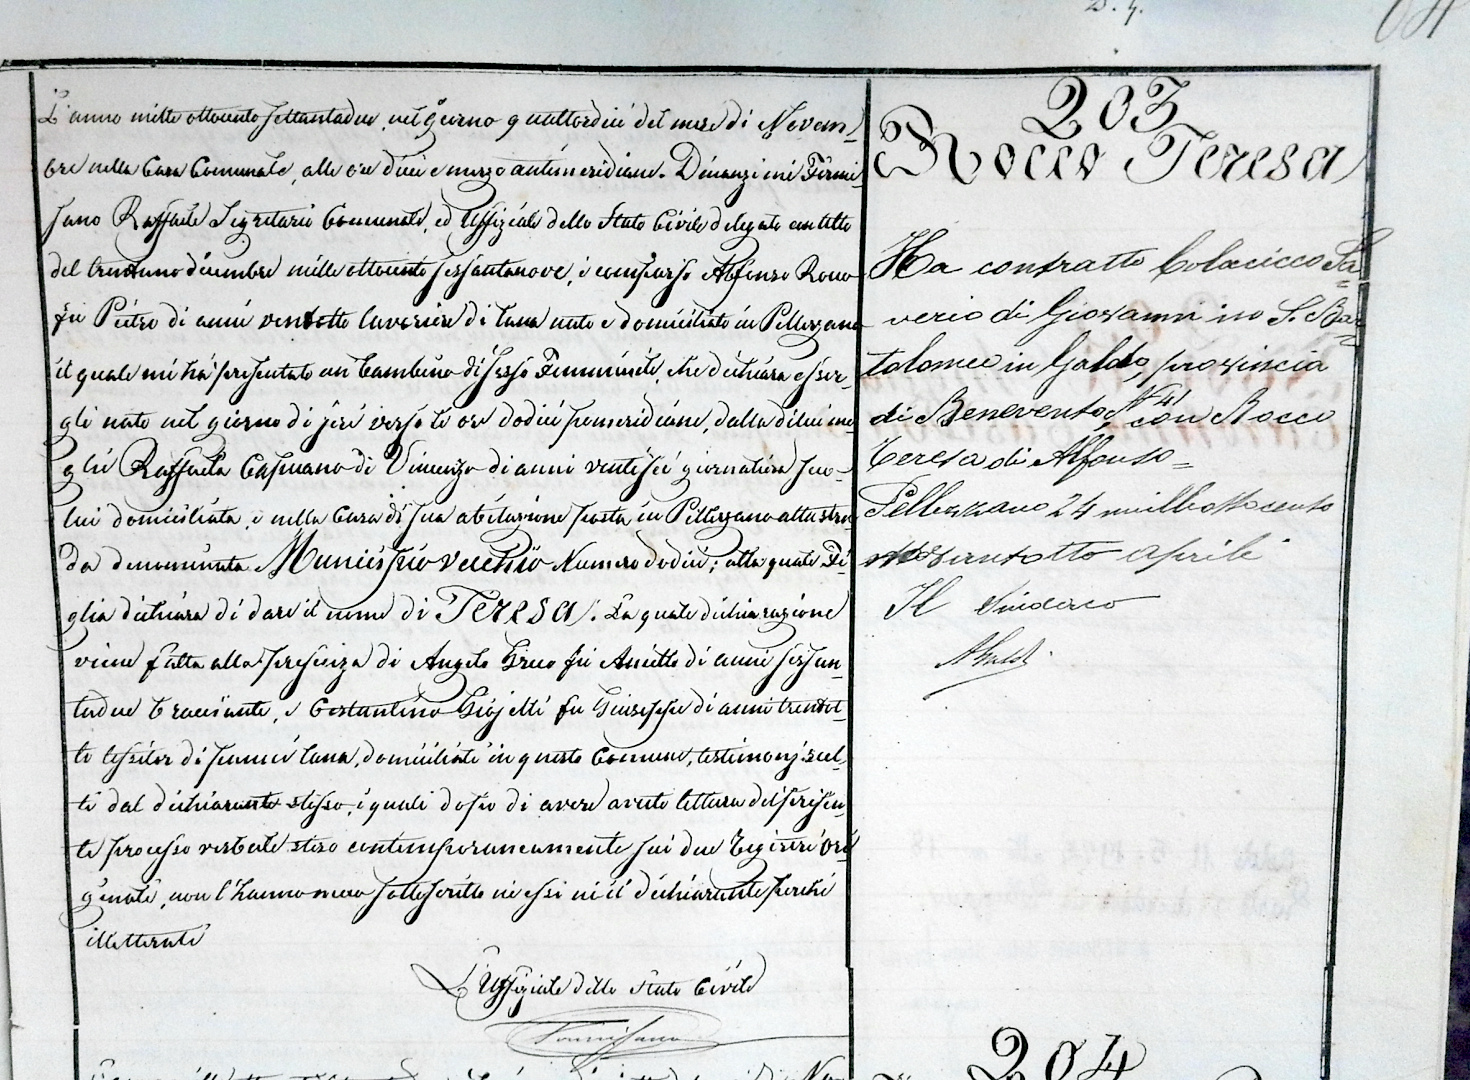 203
Rocco Teresa
L'anno mille ottocento settantadue, nel giorno quattordici del mese di Novem-
bre nella Casa Comunale, alle ore dieci e mezzo antimeridiane. Dinanzi mi Firmi-
sano Raffaele Segretario Comunale, ed Uffiziale dello Stato Civile delegato con atto
del trentuno dicembre mille ottocento sessantanove, è comparso Alfonso Rocco
fu Pietro di anni ventotto lavoriere di lana nato e domiciliato in Pellezzano
il quale mi ha presentato un bambino di sesso Femminile, che dichiara esser-
gli nato nel giorno di jeri verso le ore dodici pomeridiane, dalla di lui mo-
glie Raffaela di Vincenzo di anni ventisei giornatiera seco-
lui domiciliata, e nella Casa di sua abitazione posta in Pellezzano alla stra-
da denominata Municipio vecchio Numero dodici; alla quale Fi-
glia dichiara di dare il nome di Teresa. La quale dichiarazione
viene fatta alla presenza di Angelo Greco fu Aniello di anni sessan-
tadue bracciante, e Costantino fu Giuseppe di anni trentot-
to tessitor di panni lana, domiciliati in questo Comune, testimonj scel-
ti dal dichiarante stesso, i quali dopo di avere avuto lettura del presen-
te processo verbale steso contemporaneamente sui due Registri Ori-
ginali, non l'hanno meco sottoscritto nè essi nè il dichiarante perchè
illetterati
L'Uffiziale dello Stato Civile
Firmisano
Ha contratto Colacicco Sa=
verio di Giovanni in S. Bar=
tolomeo in Galdo, provincia
di Benevento, N 41 con Rocco
Teresa di Alfonso=
Pellezzano 24 milleottocento
novantotto aprile
Il Sindaco
204